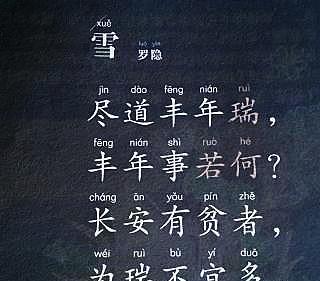 xuě
雪
luó yǐn
罗隐
jìn dào fēng nián ruì
尽道丰年瑞，
fēng nián shì ruò hé
丰年事若何？
cháng ān yǒu pín zhě
长安有贫者，
wéi ruì bù yí duō
为瑞不宜多